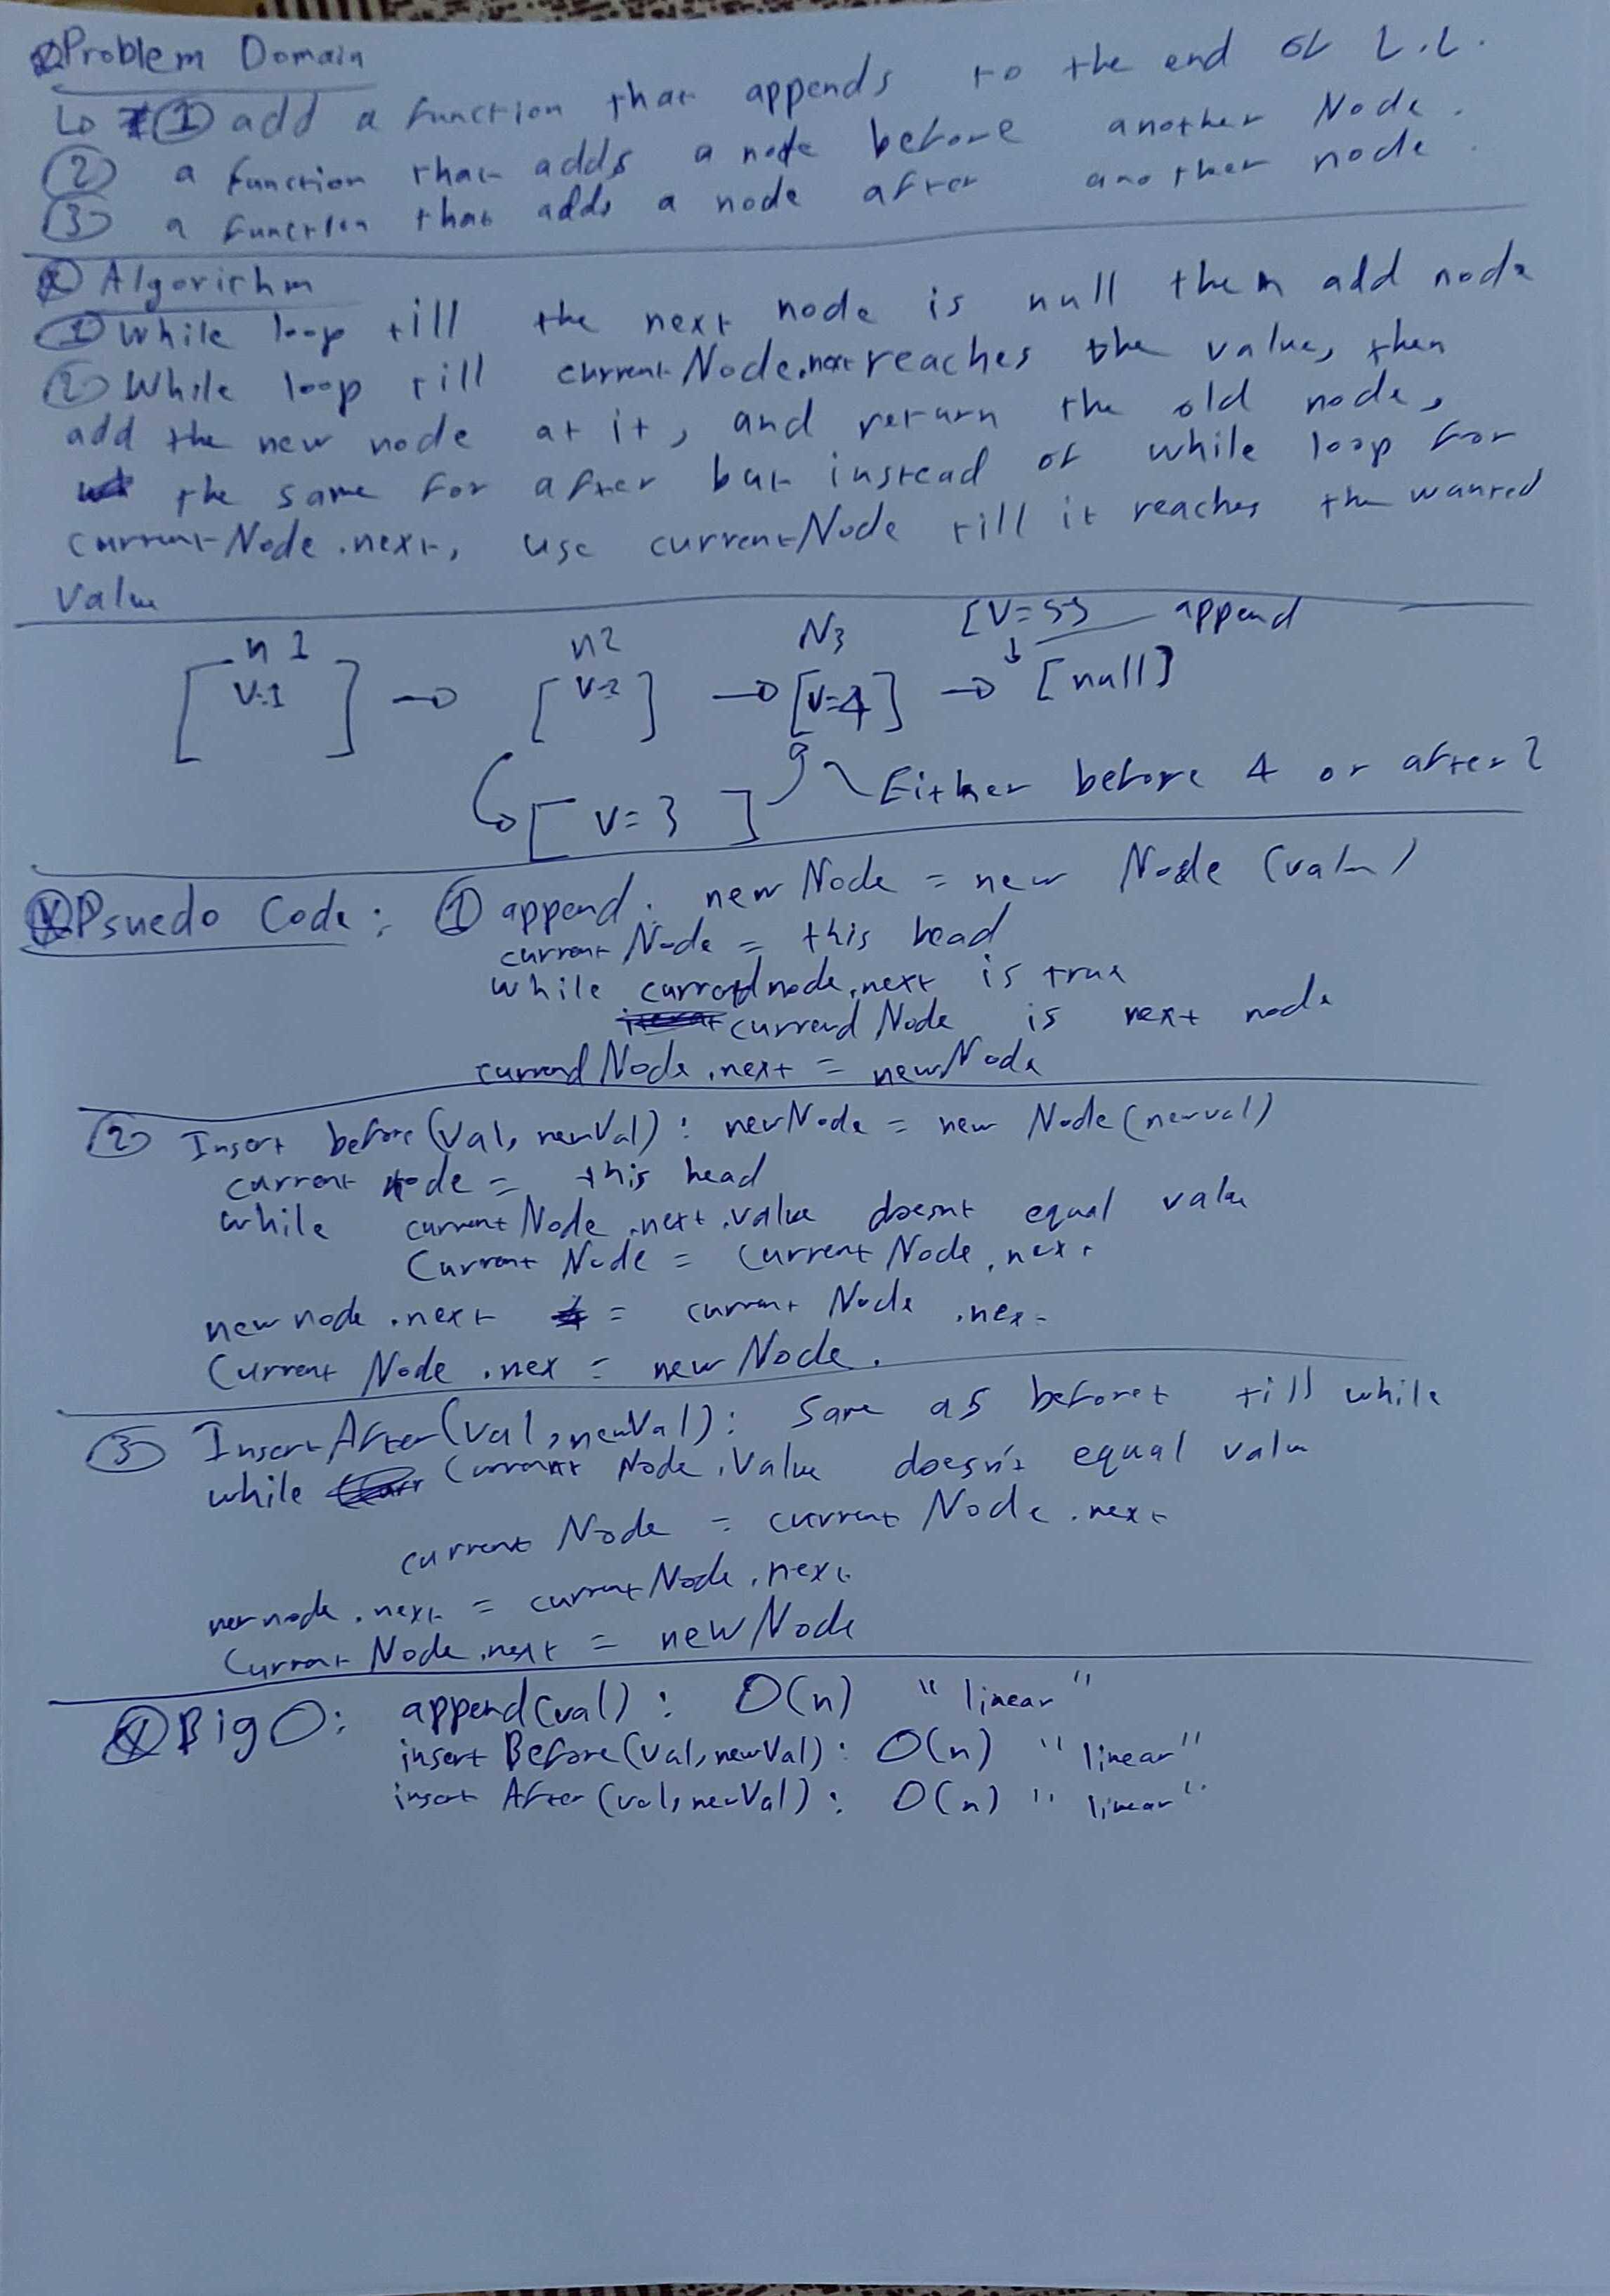 Problem Domain
↳ ① add a function that appends to the end of L.L.
② a function that adds a node before another Node.
③ a function that adds a node after another node.
Algorithm
① While loop till the next node is null then add node
② While loop till currentNode.next reaches the value, then
add the new node at it, and return the old node,
the same for after but instead of while loop for
currentNode.next, use currentNode till it reaches the wanted
Value
n1 n2 N3 [V=5] append
[V=1] → [V=2] → [V=4] → [null]
[V=3] Either before 4 or after 2
Psuedo Code: ① append: newNode = new Node (value)
currentNode = this head
while currentnode.next is true
currend Node is next node
currend Node.next = newNode
② Insert before(val, newVal): newNode = new Node(newval)
current node = this head
while currentNode.next.value doesnt equal value
Current Node = current Node.next
new node.next = current Node.nex
Current Node.nex = new Node.
③ InsertAfter(val, newVal): Same as before till while
while Current Node.Value doesn't equal value
current Node = current Node.next
newnode.next = currentNode.next
Current Node.next = newNode
Big O: append(val): O(n) "linear"
insert Before(val, newVal): O(n) "linear"
insert After(val, newVal): O(n) "linear"